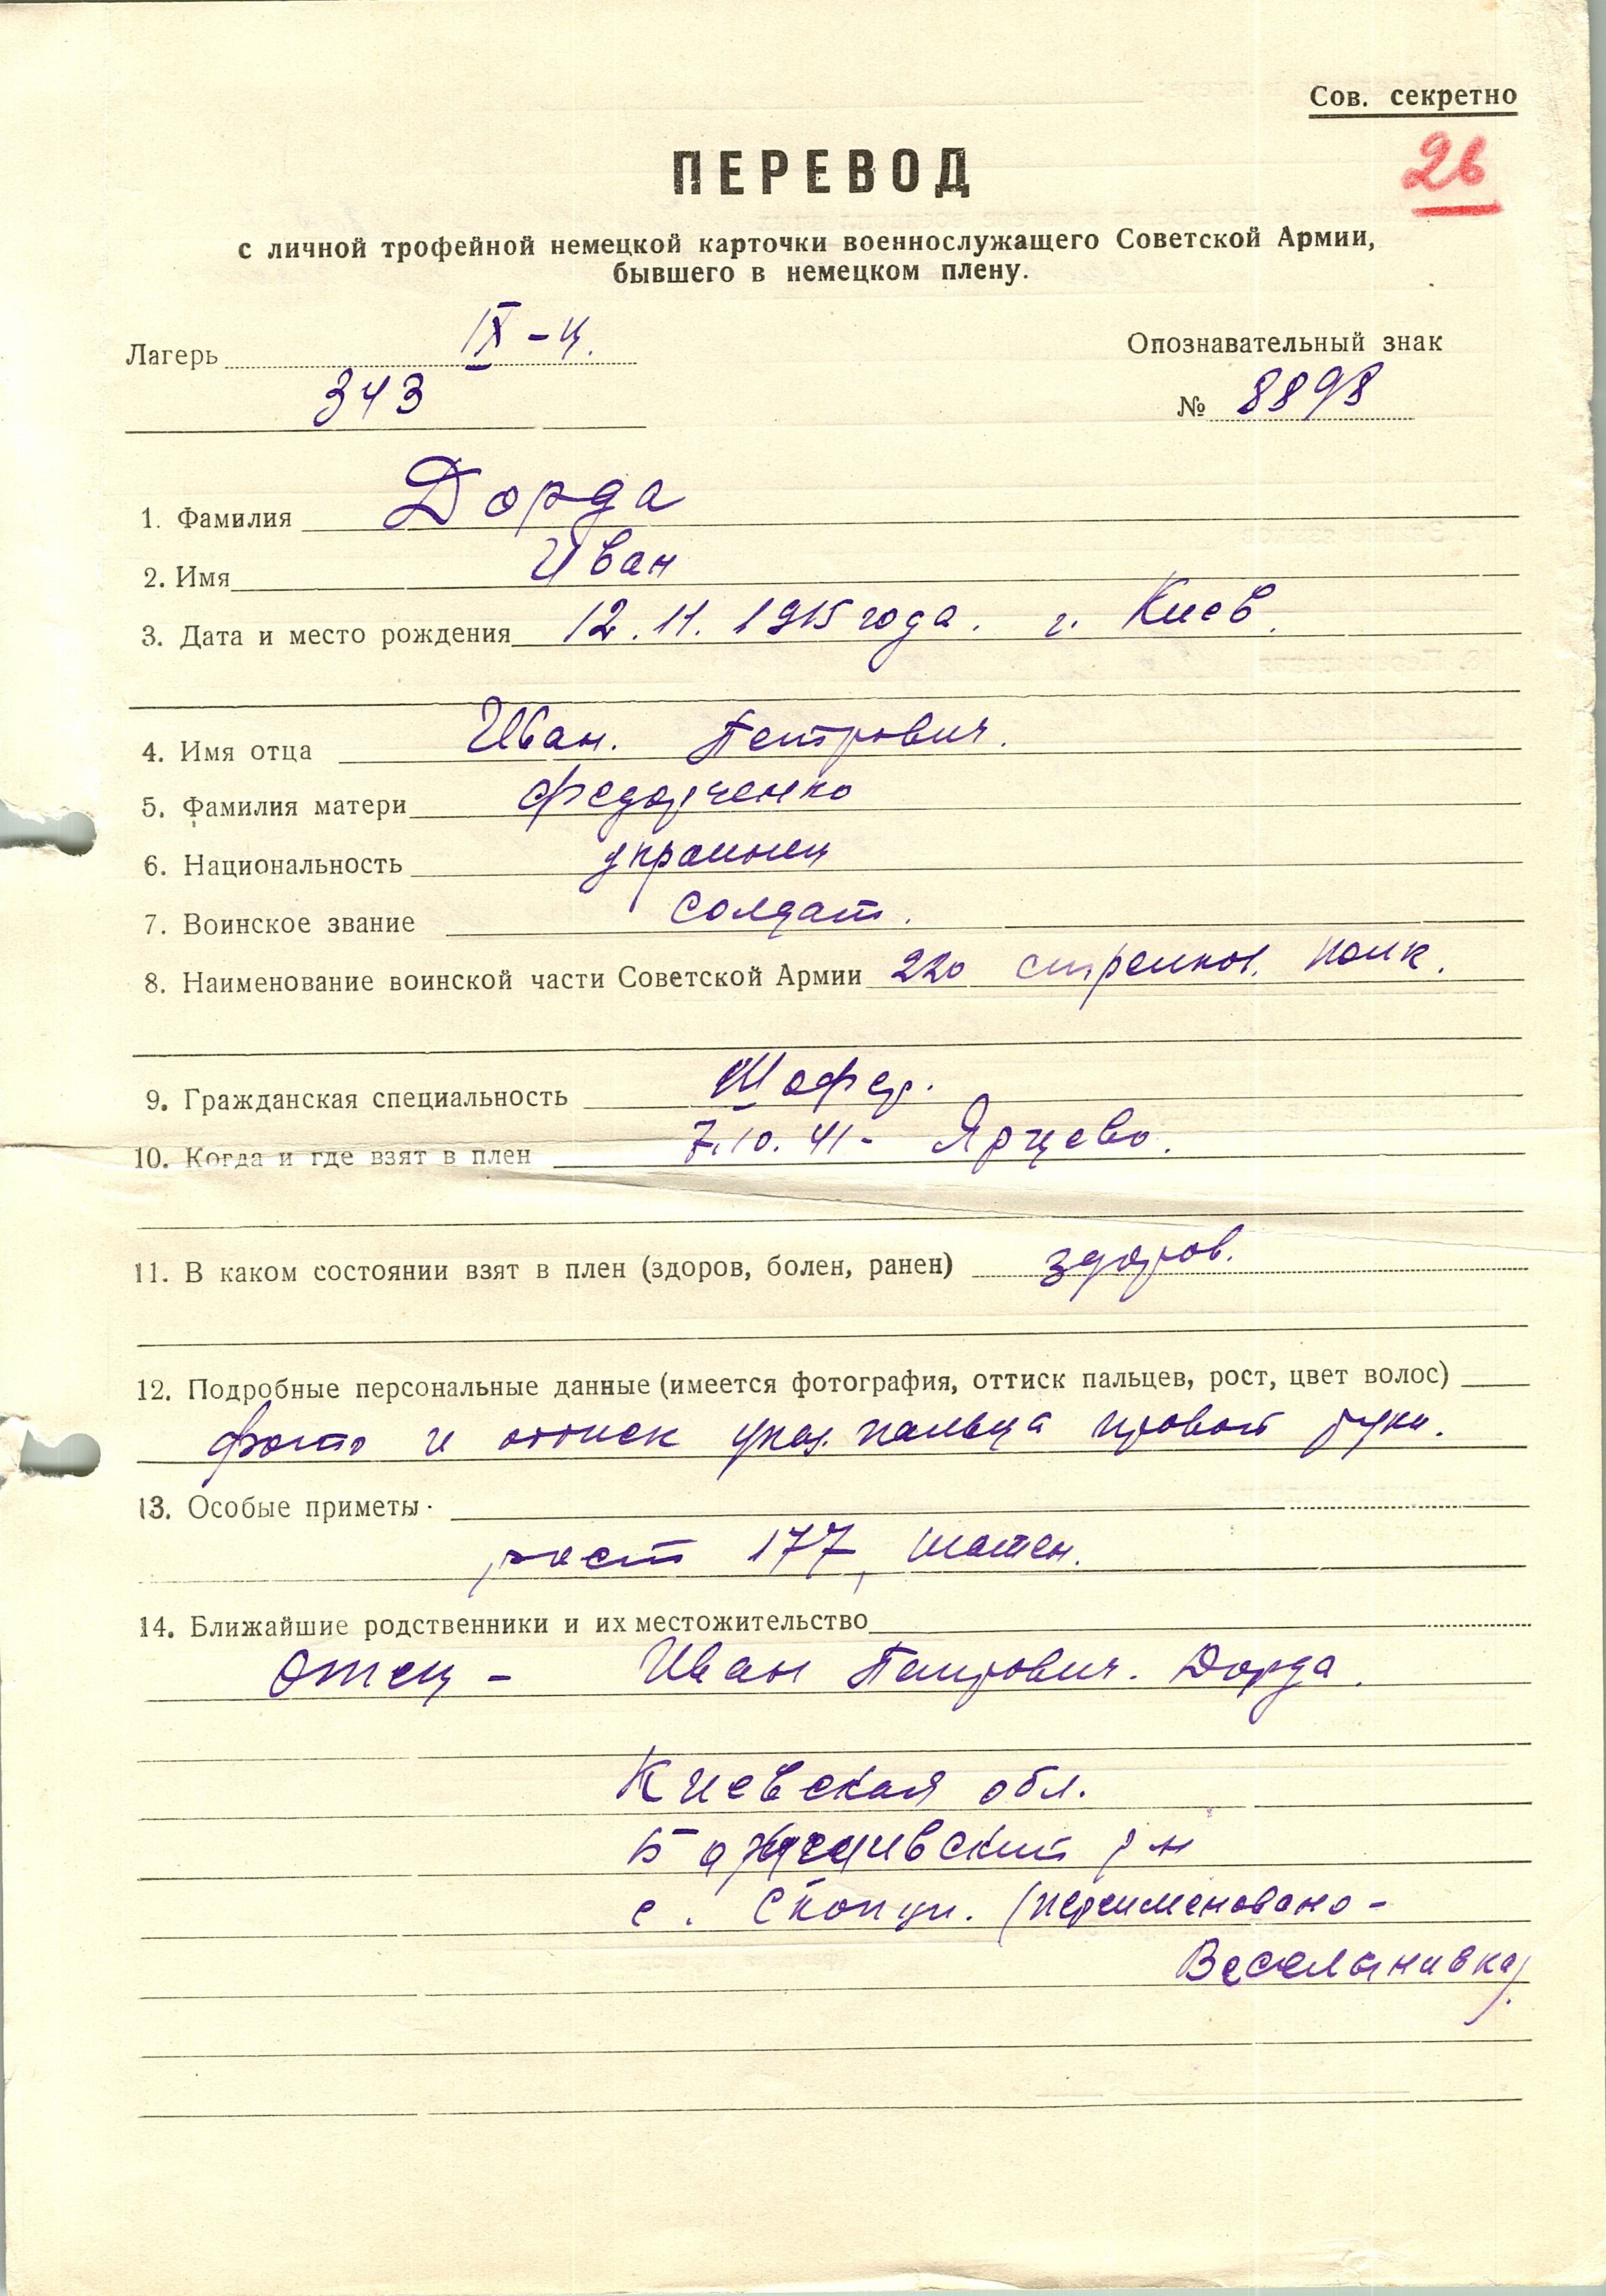 Сов. секретно
26
ПЕРЕВОД
с личной трофейной немецкой карточки военнослужащего Советской Армии,
бывшего в немецком плену.
Лагерь IX-Ц.
343
Опознавательный знак
№ 8898
1. Фамилия Дорда
2. Имя Иван
3. Дата и место рождения 12.11.1915 года. г. Киев.
4. Имя отца Иван. Петрович.
5. Фамилия матери Федорченко
6. Национальность украинец
7. Воинское звание солдат.
8. Наименование воинской части Советской Армии 220 стрелков. полк.
9. Гражданская специальность Шофер.
10. Когда и где взят в плен 7.10.41- Ярцево.
11. В каком состоянии взят в плен (здоров, болен, ранен) здоров.
12. Подробные персональные данные (имеется фотография, оттиск пальцев, рост, цвет волос)
фото и оттиск указ. пальца правой руки.
13. Особые приметы
рост 177, шатен.
14. Ближайшие родственники и их местожительство
Отец - Иван Петрович. Дорда.
Киевская обл.
р-н
с. Скопци. (переименовано-
Веселынивка).